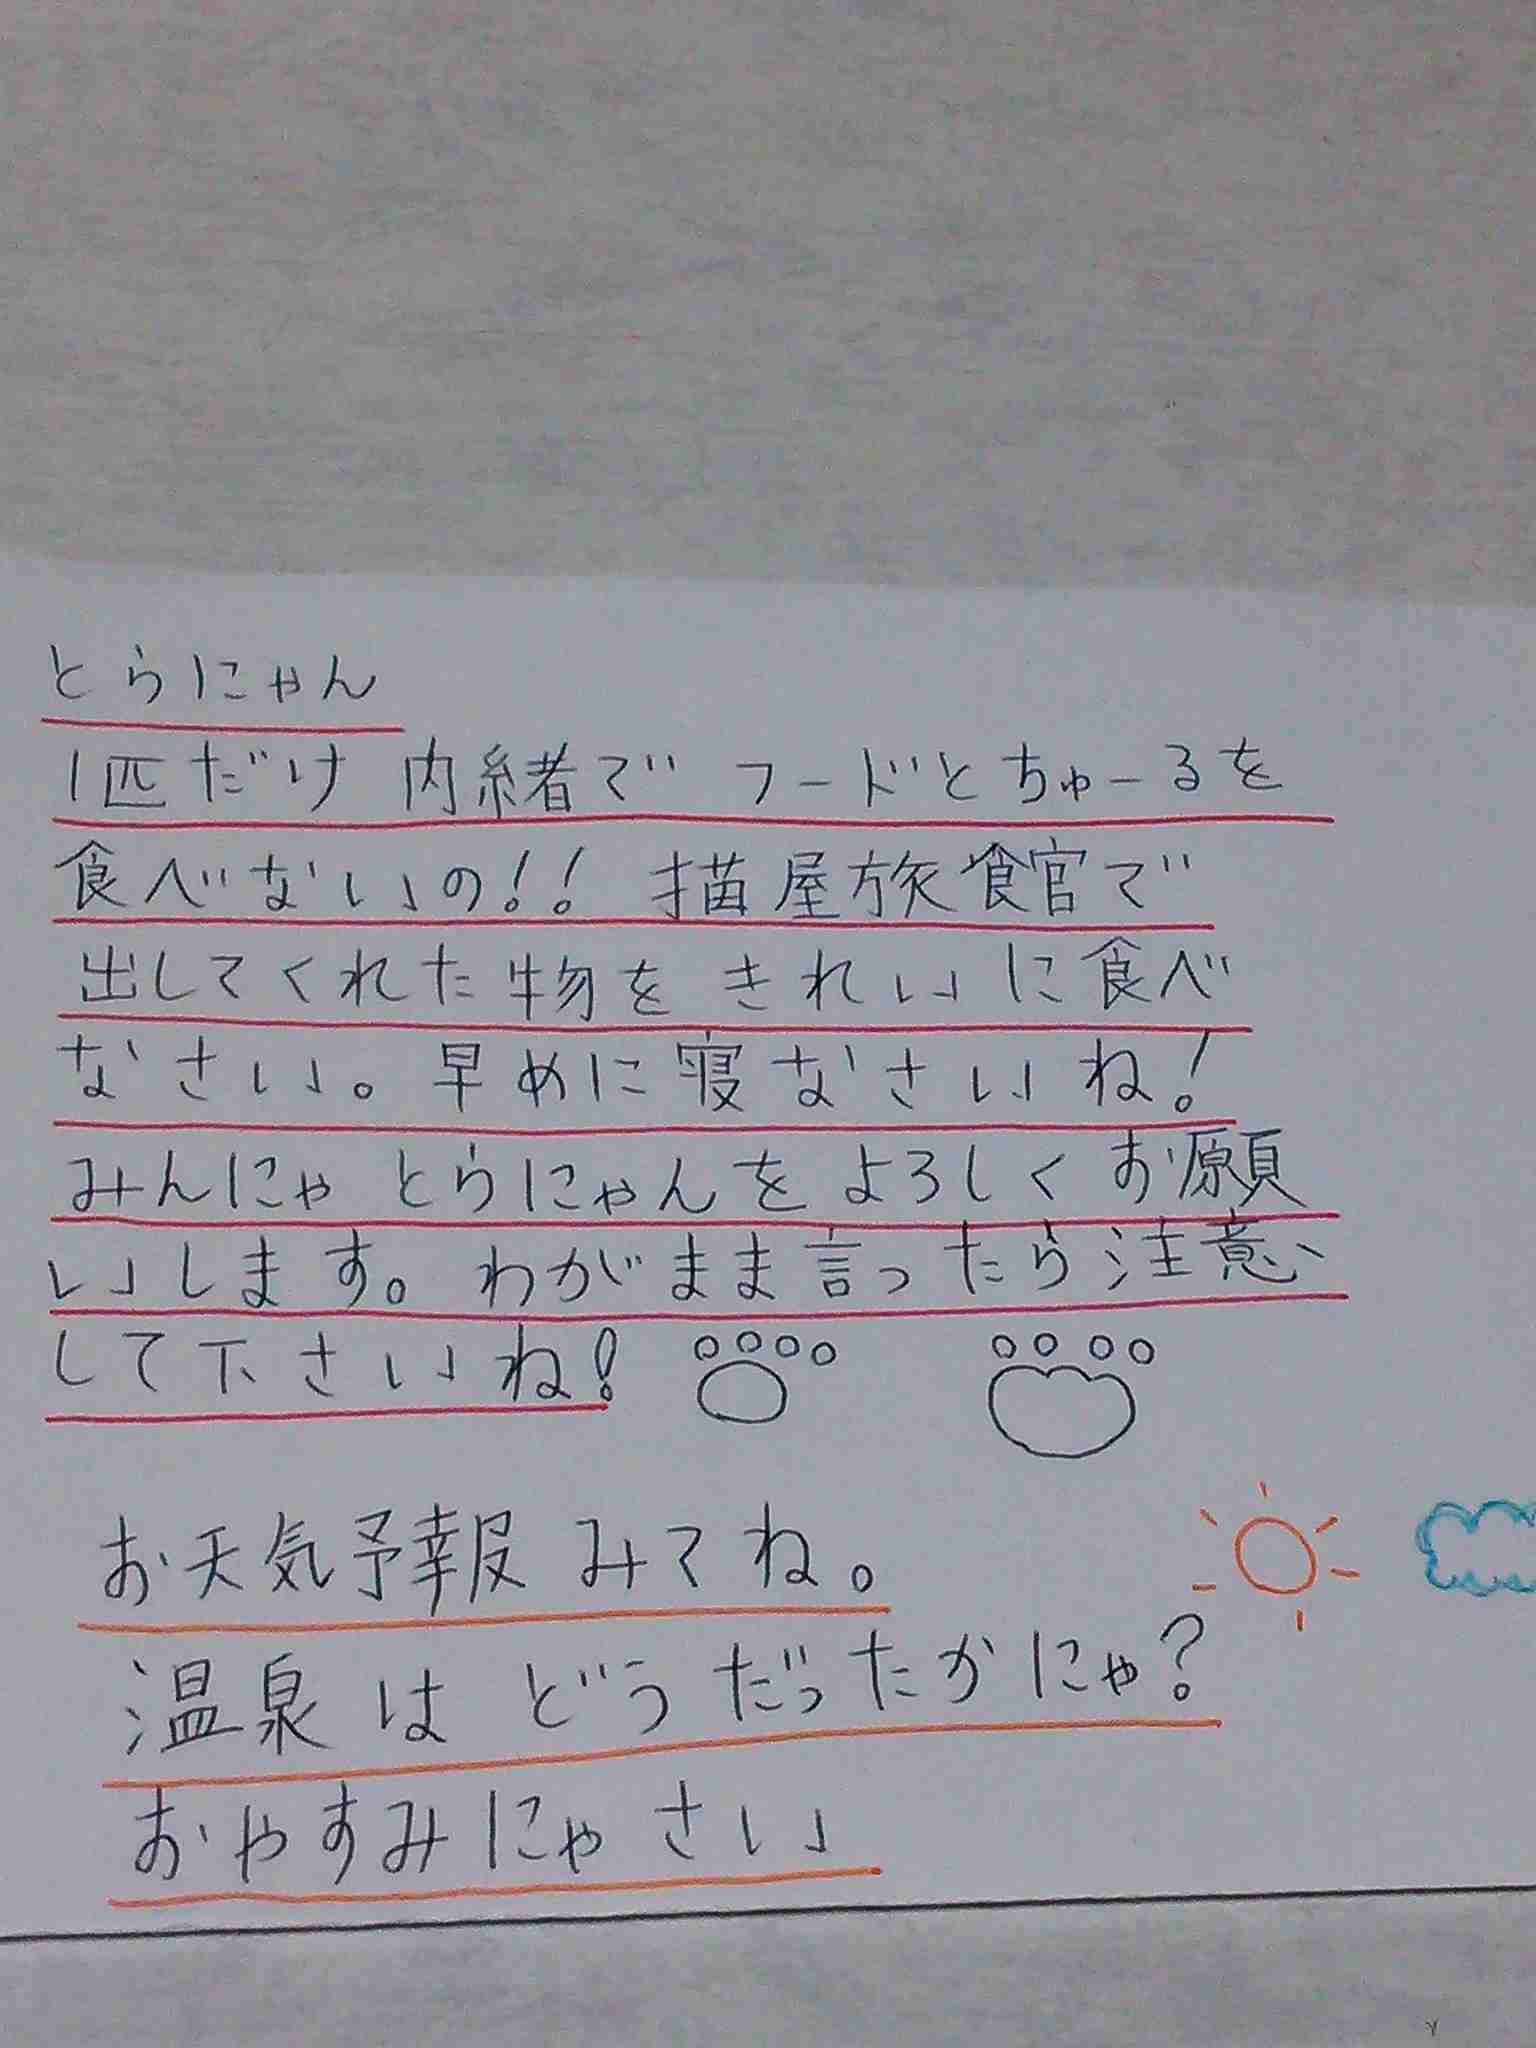 とらにゃん
1匹だけ 内緒で フードとちゅーるを
食べないの!! 描屋旅館で
出してくれた物を きれいに食べ
なさい。早めに寝なさいね!
みんにゃ とらにゃんを よろしくお願
いします。わがまま言ったら注意
して下さいね!
お天気予報 みてね。
温泉は どうだったかにゃ?
おやすみにゃさい